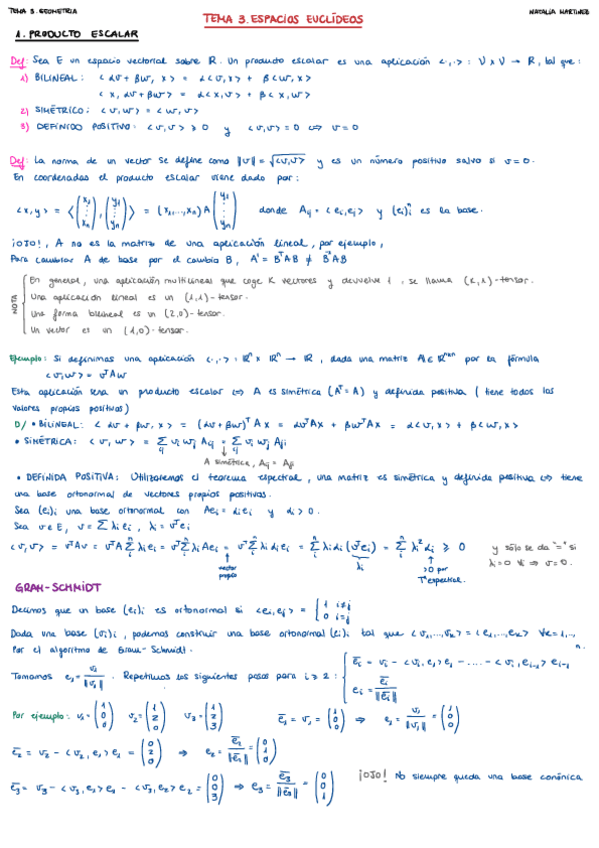 TEMA 3. GEOMETRIA
NATALIA MARTINEZ
TEMA 3. ESPACIOS EUCLÍDEOS
1. PRODUCTO ESCALAR
Def: Sea E un espacio vectorial sobre R. Un producto escalar es una aplicación <·,·> : V x V → R, tal que:
1) BILINEAL: <αv + βw, x> = α<v,x> + β<w,x>
<x, αv + βw> = α<x,v> + β<x,w>
2) SIMÉTRICO: <v,w> = <w,v>
3) DEFINIDO POSITIVO: <v,v> ≥ 0 y <v,v> = 0 ⇔ v = 0
Def: La norma de un vector se define como ||v|| = √<v,v> y es un número positivo salvo si v = 0.
En coordenadas el producto escalar viene dado por:
<x,y> = <(x₁ ⋮ xₙ), (y₁ ⋮ yₙ)> = (x₁,...,xₙ) A (y₁ ⋮ yₙ) donde Aᵢⱼ = <eᵢ,eⱼ> y (eᵢ)ⁿᵢ es la base.
¡OJO!, A no es la matriz de una aplicación lineal, por ejemplo,
Para cambiar A de base por el cambio B, A' = BᵀAB ≠ B⁻¹AB
NOTA
En general, una aplicación multilineal que coge K vectores y devuelve 1, se llama (K,1)-tensor.
Una aplicación lineal es un (1,1)-tensor.
Una forma bilineal es un (2,0)-tensor.
Un vector es un (1,0)-tensor.
Ejemplo: Si definimos una aplicación <·,·> : ℝⁿ x ℝⁿ → ℝ, dada una matriz A∈ℝⁿˣⁿ por la fórmula
<v,w> = vᵀAw
Esta aplicación sera un producto escalar ⇔ A es simétrica (Aᵀ = A) y definida positiva (tiene todos los
valores propios positivos)
D/ • BILINEAL: <αv + βw, x> = (αv + βw)ᵀAx = αvᵀAx + βwᵀAx = α<v,x> + β<w,x>
• SIMÉTRICA: <v,w> = Σᵢⱼ vᵢwⱼ Aᵢⱼ = Σᵢⱼ vᵢwⱼ Aⱼᵢ
A simétrica, Aᵢⱼ = Aⱼᵢ
• DEFINIDA POSITIVA: Utilizaremos el teorema espectral, una matriz es simétrica y definida positiva ⇔ tiene
una base ortonormal de vectores propios positivos.
Sea (eᵢ)ᵢ una base ortonormal con Aeᵢ = αᵢeᵢ y αᵢ > 0.
Sea v∈E, v = Σλᵢeᵢ, λᵢ = vᵀeᵢ
<v,v> = vᵀAv = vᵀA Σλᵢeᵢ = vᵀΣλᵢAeᵢ = vᵀΣλᵢαᵢeᵢ = Σλᵢαᵢ(vᵀeᵢ) = Σλᵢ²αᵢ ≥ 0 y sólo se da "=" si
λᵢ = 0 ∀i ⇒ v = 0.
vector propio
λᵢ
>0 por
Tª espectral.
GRAM-SCHMIDT
Decimos que un base (eᵢ)ᵢ es ortonormal si <eᵢ,eⱼ> = { 1 i≠j
0 i=j
Dada una base (vᵢ)ᵢ, podemos construir una base ortonormal (eᵢ)ᵢ tal que <v₁,...,vₖ> = <e₁,...,eₖ> ∀k=1,..,n.
Por el algoritmo de Gram-Schmidt.
Tomamos e₁ = v₁/||v₁||. Repetimos los siguientes pasos para i ≥ 2: { ēᵢ = vᵢ - <vᵢ,e₁>e₁ - .... - <vᵢ,eᵢ₋₁>eᵢ₋₁
eᵢ = ēᵢ/||ēᵢ||
Por ejemplo: v₁ = (1 0 0) v₂ = (1 2 0) v₃ = (1 2 3) ē₁ = v₁ = (1 0 0) ⇒ e₁ = v₁/||v₁|| = (1 0 0)
ē₂ = v₂ - <v₂,e₁>e₁ = (0 2 0) ⇒ e₂ = ē₂/||ē₂|| = (0 1 0)
ē₃ = v₃ - <v₃,e₁>e₁ - <v₃,e₂>e₂ = (0 0 3) ⇒ e₃ = ē₃/||ē₃|| = (0 0 1) ¡OJO! No siempre queda una base canónica